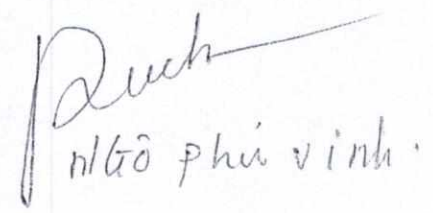 nGô phú vinh.